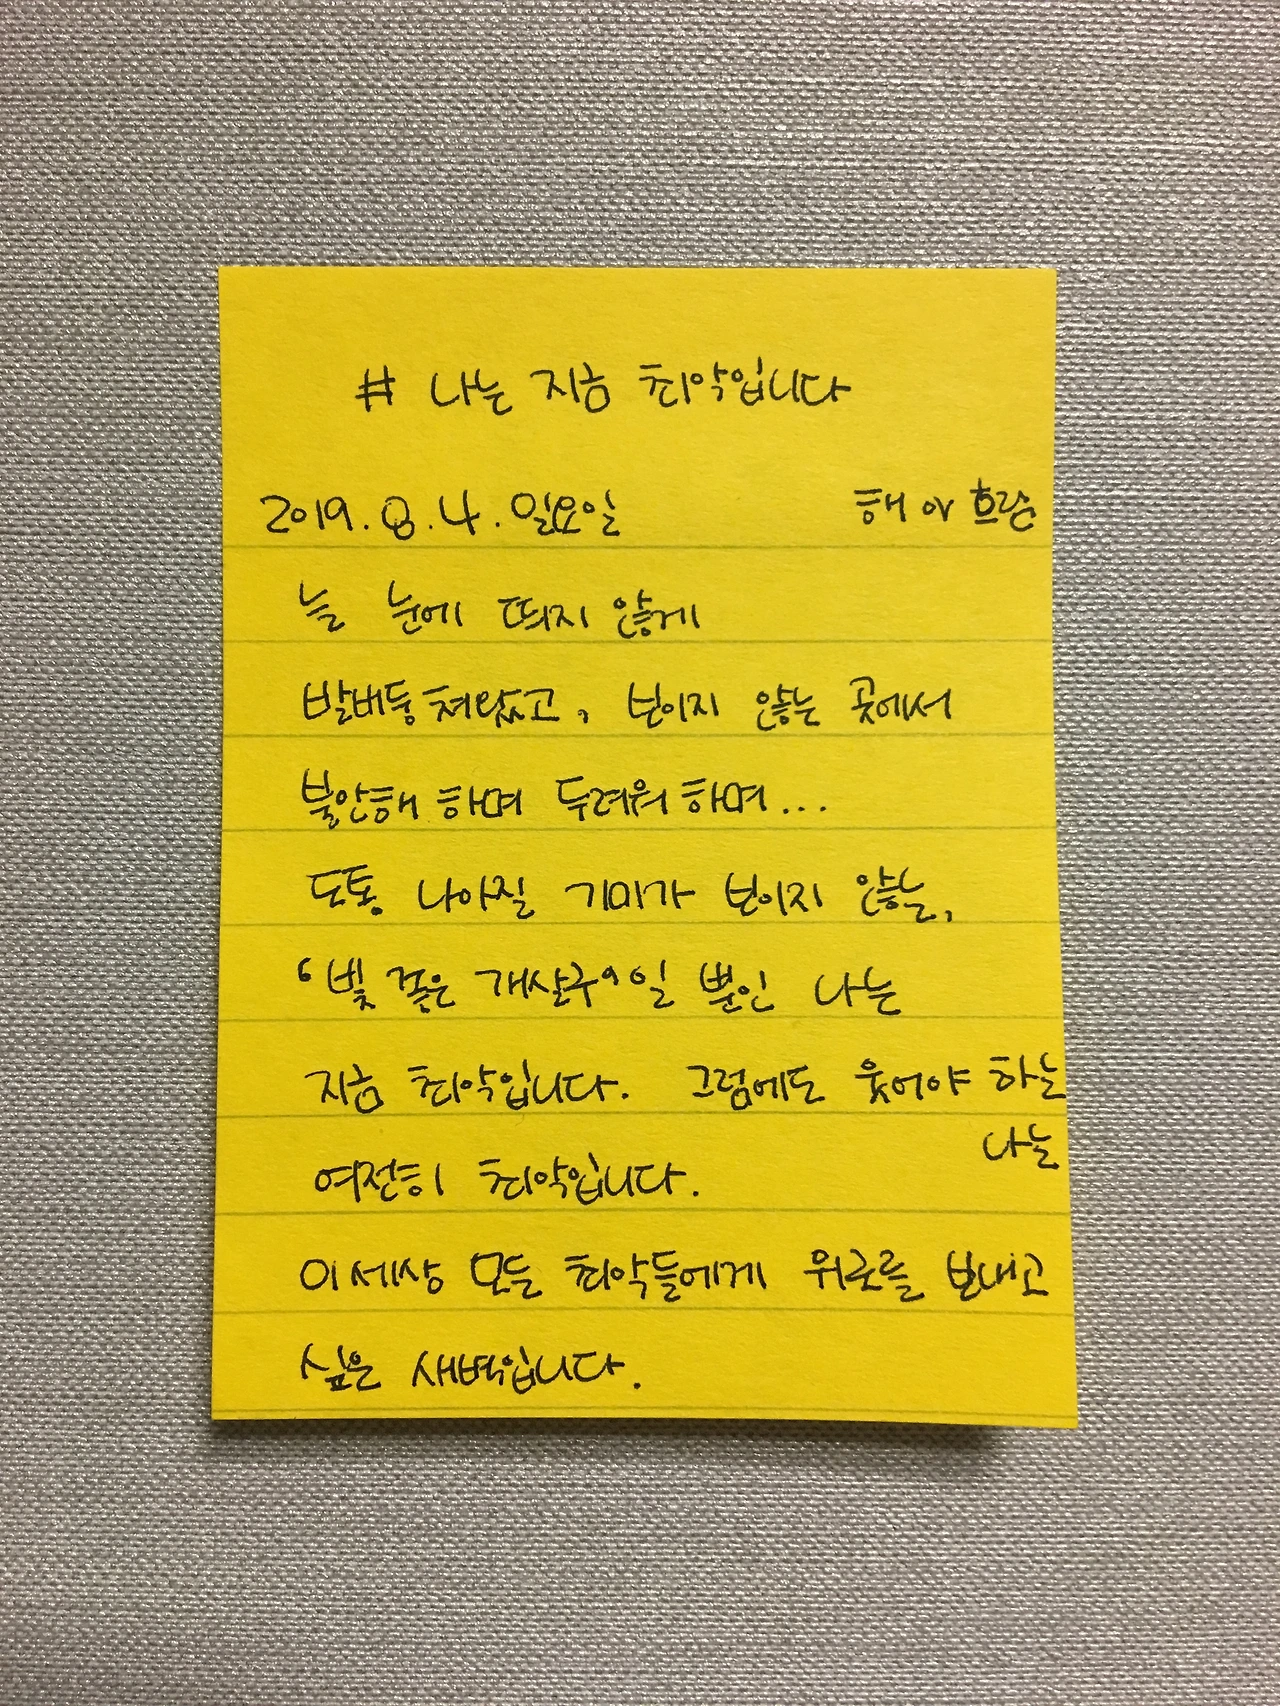 # 나는 지금 최악입니다
2019.8.4.일요일 해 아 흐림
늘 눈에 띄지 않게
발버둥쳐왔고, 보이지 않는 곳에서
불안해 하며 두려워하며...
도통 나아질 기미가 보이지 않는,
'빛 좋은 개살구'일 뿐인 나는
지금 최악입니다. 그럼에도 웃어야 하는
나는
여전히 최악입니다.
이세상 모든 최악들에게 위로를 보내고
싶은 새벽입니다.